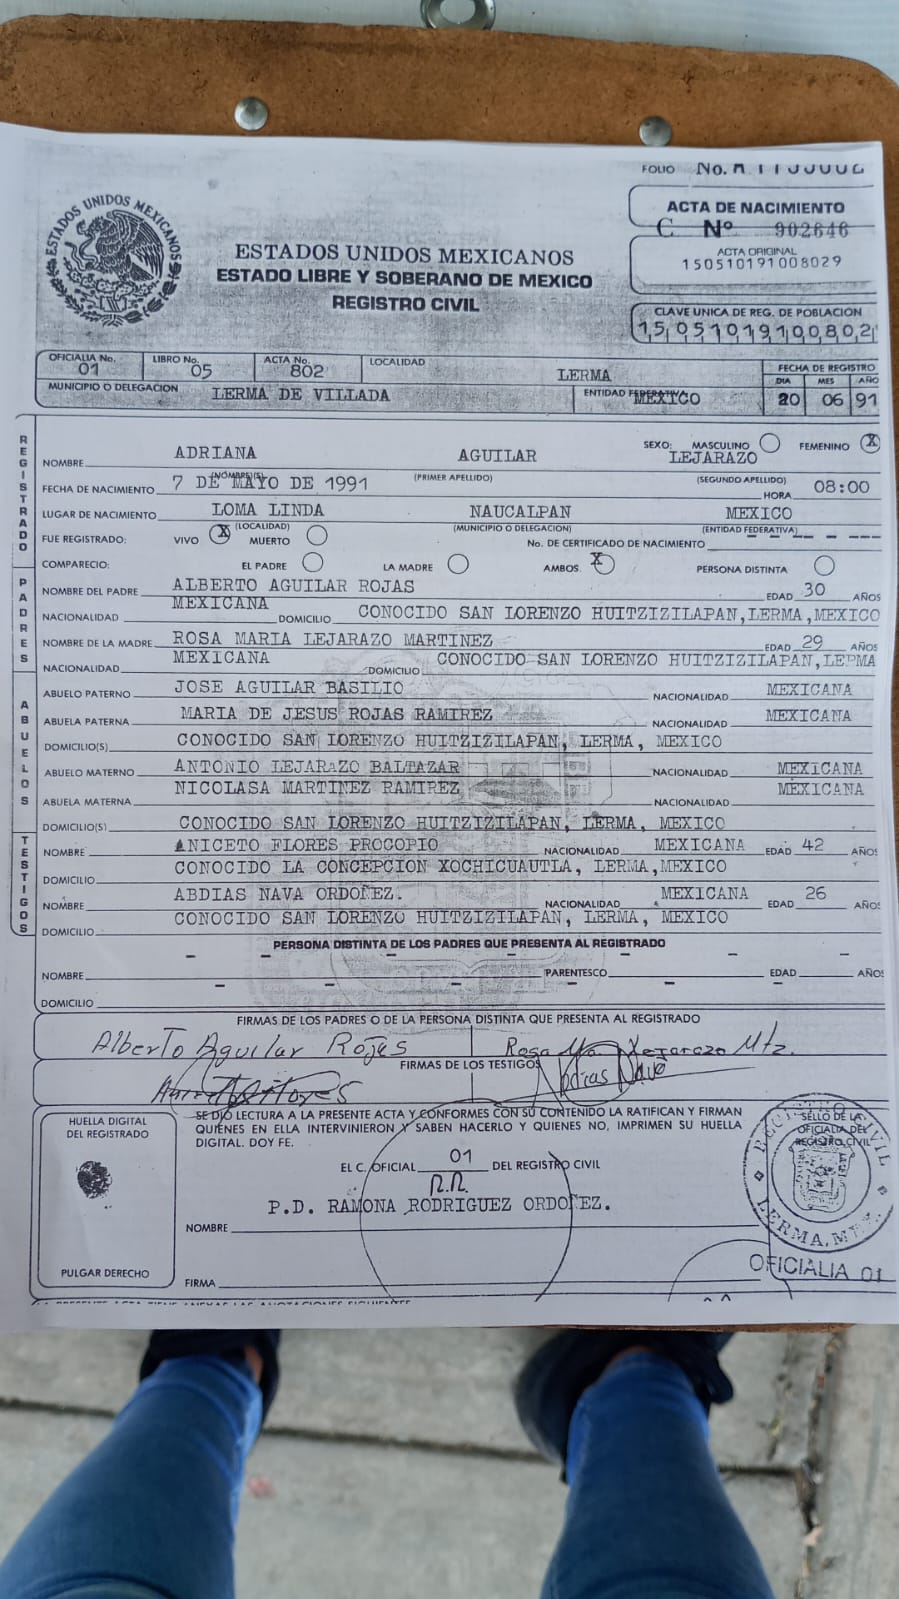 FOLIO No.
ACTA DE NACIMIENTO
C Nº 902646
ACTA ORIGINAL
150510191008029
ESTADOS UNIDOS MEXICANOS
ESTADOS UNIDOS MEXICANOS
ESTADO LIBRE Y SOBERANO DE MEXICO
REGISTRO CIVIL
CLAVE UNICA DE REG. DE POBLACION
15051019100802
OFICIALIA No. 01 LIBRO No. 05 ACTA No. 802 LOCALIDAD LERMA FECHA DE REGISTRO
MUNICIPIO O DELEGACION LERMA DE VILLADA ENTIDAD FEDERATIVA MEXICO DIA 20 MES 06 AÑO 91
REGISTRADO
SEXO: MASCULINO FEMENINO X
NOMBRE ADRIANA AGUILAR LEJARAZO
(NOMBRE(S)) (PRIMER APELLIDO) (SEGUNDO APELLIDO)
FECHA DE NACIMIENTO 7 DE MAYO DE 1991 HORA 08:00
LUGAR DE NACIMIENTO LOMA LINDA NAUCALPAN MEXICO
(LOCALIDAD) (MUNICIPIO O DELEGACION) (ENTIDAD FEDERATIVA)
FUE REGISTRADO: VIVO X MUERTO No. DE CERTIFICADO DE NACIMIENTO
COMPARECIO: EL PADRE LA MADRE AMBOS. X PERSONA DISTINTA
PADRES
NOMBRE DEL PADRE ALBERTO AGUILAR ROJAS EDAD 30 AÑOS
NACIONALIDAD MEXICANA DOMICILIO CONOCIDO SAN LORENZO HUITZIZILAPAN, LERMA, MEXICO
NOMBRE DE LA MADRE ROSA MARIA LEJARAZO MARTINEZ EDAD 29 AÑOS
NACIONALIDAD MEXICANA DOMICILIO CONOCIDO SAN LORENZO HUITZIZILAPAN, LERMA
ABUELOS
ABUELO PATERNO JOSE AGUILAR BASILIO NACIONALIDAD MEXICANA
ABUELA PATERNA MARIA DE JESUS ROJAS RAMIREZ NACIONALIDAD MEXICANA
DOMICILIO(S) CONOCIDO SAN LORENZO HUITZIZILAPAN, LERMA, MEXICO
ABUELO MATERNO ANTONIO LEJARAZO BALTAZAR NACIONALIDAD MEXICANA
ABUELA MATERNA NICOLASA MARTINEZ RAMIREZ NACIONALIDAD MEXICANA
DOMICILIO(S) CONOCIDO SAN LORENZO HUITZIZILAPAN, LERMA, MEXICO
TESTIGOS
NOMBRE ANICETO FLORES PROCOPIO NACIONALIDAD MEXICANA EDAD 42 AÑOS
DOMICILIO CONOCIDO LA CONCEPCION XOCHICUAUTLA, LERMA, MEXICO
NOMBRE ABDIAS NAVA ORDOÑEZ. NACIONALIDAD MEXICANA EDAD 26 AÑOS
DOMICILIO CONOCIDO SAN LORENZO HUITZIZILAPAN, LERMA, MEXICO
PERSONA DISTINTA DE LOS PADRES QUE PRESENTA AL REGISTRADO
NOMBRE PARENTESCO EDAD AÑOS
DOMICILIO
FIRMAS DE LOS PADRES O DE LA PERSONA DISTINTA QUE PRESENTA AL REGISTRADO
Alberto Aguilar Rojas Rosa Ma. Lejarazo Mtz.
FIRMAS DE LOS TESTIGOS
Abdias Nava
HUELLA DIGITAL
DEL REGISTRADO
PULGAR DERECHO
SE DIO LECTURA A LA PRESENTE ACTA Y CONFORMES CON SU CONTENIDO LA RATIFICAN Y FIRMAN
QUIENES EN ELLA INTERVINIERON Y SABEN HACERLO Y QUIENES NO, IMPRIMEN SU HUELLA
DIGITAL. DOY FE.
EL C. OFICIAL 01 DEL REGISTRO CIVIL
P.D. RAMONA RODRIGUEZ ORDOÑEZ.
NOMBRE
FIRMA
SELLO DE LA
OFICIALIA DEL
REGISTRO CIVIL
REGISTRO CIVIL
LERMA, MEX.
OFICIALIA 01